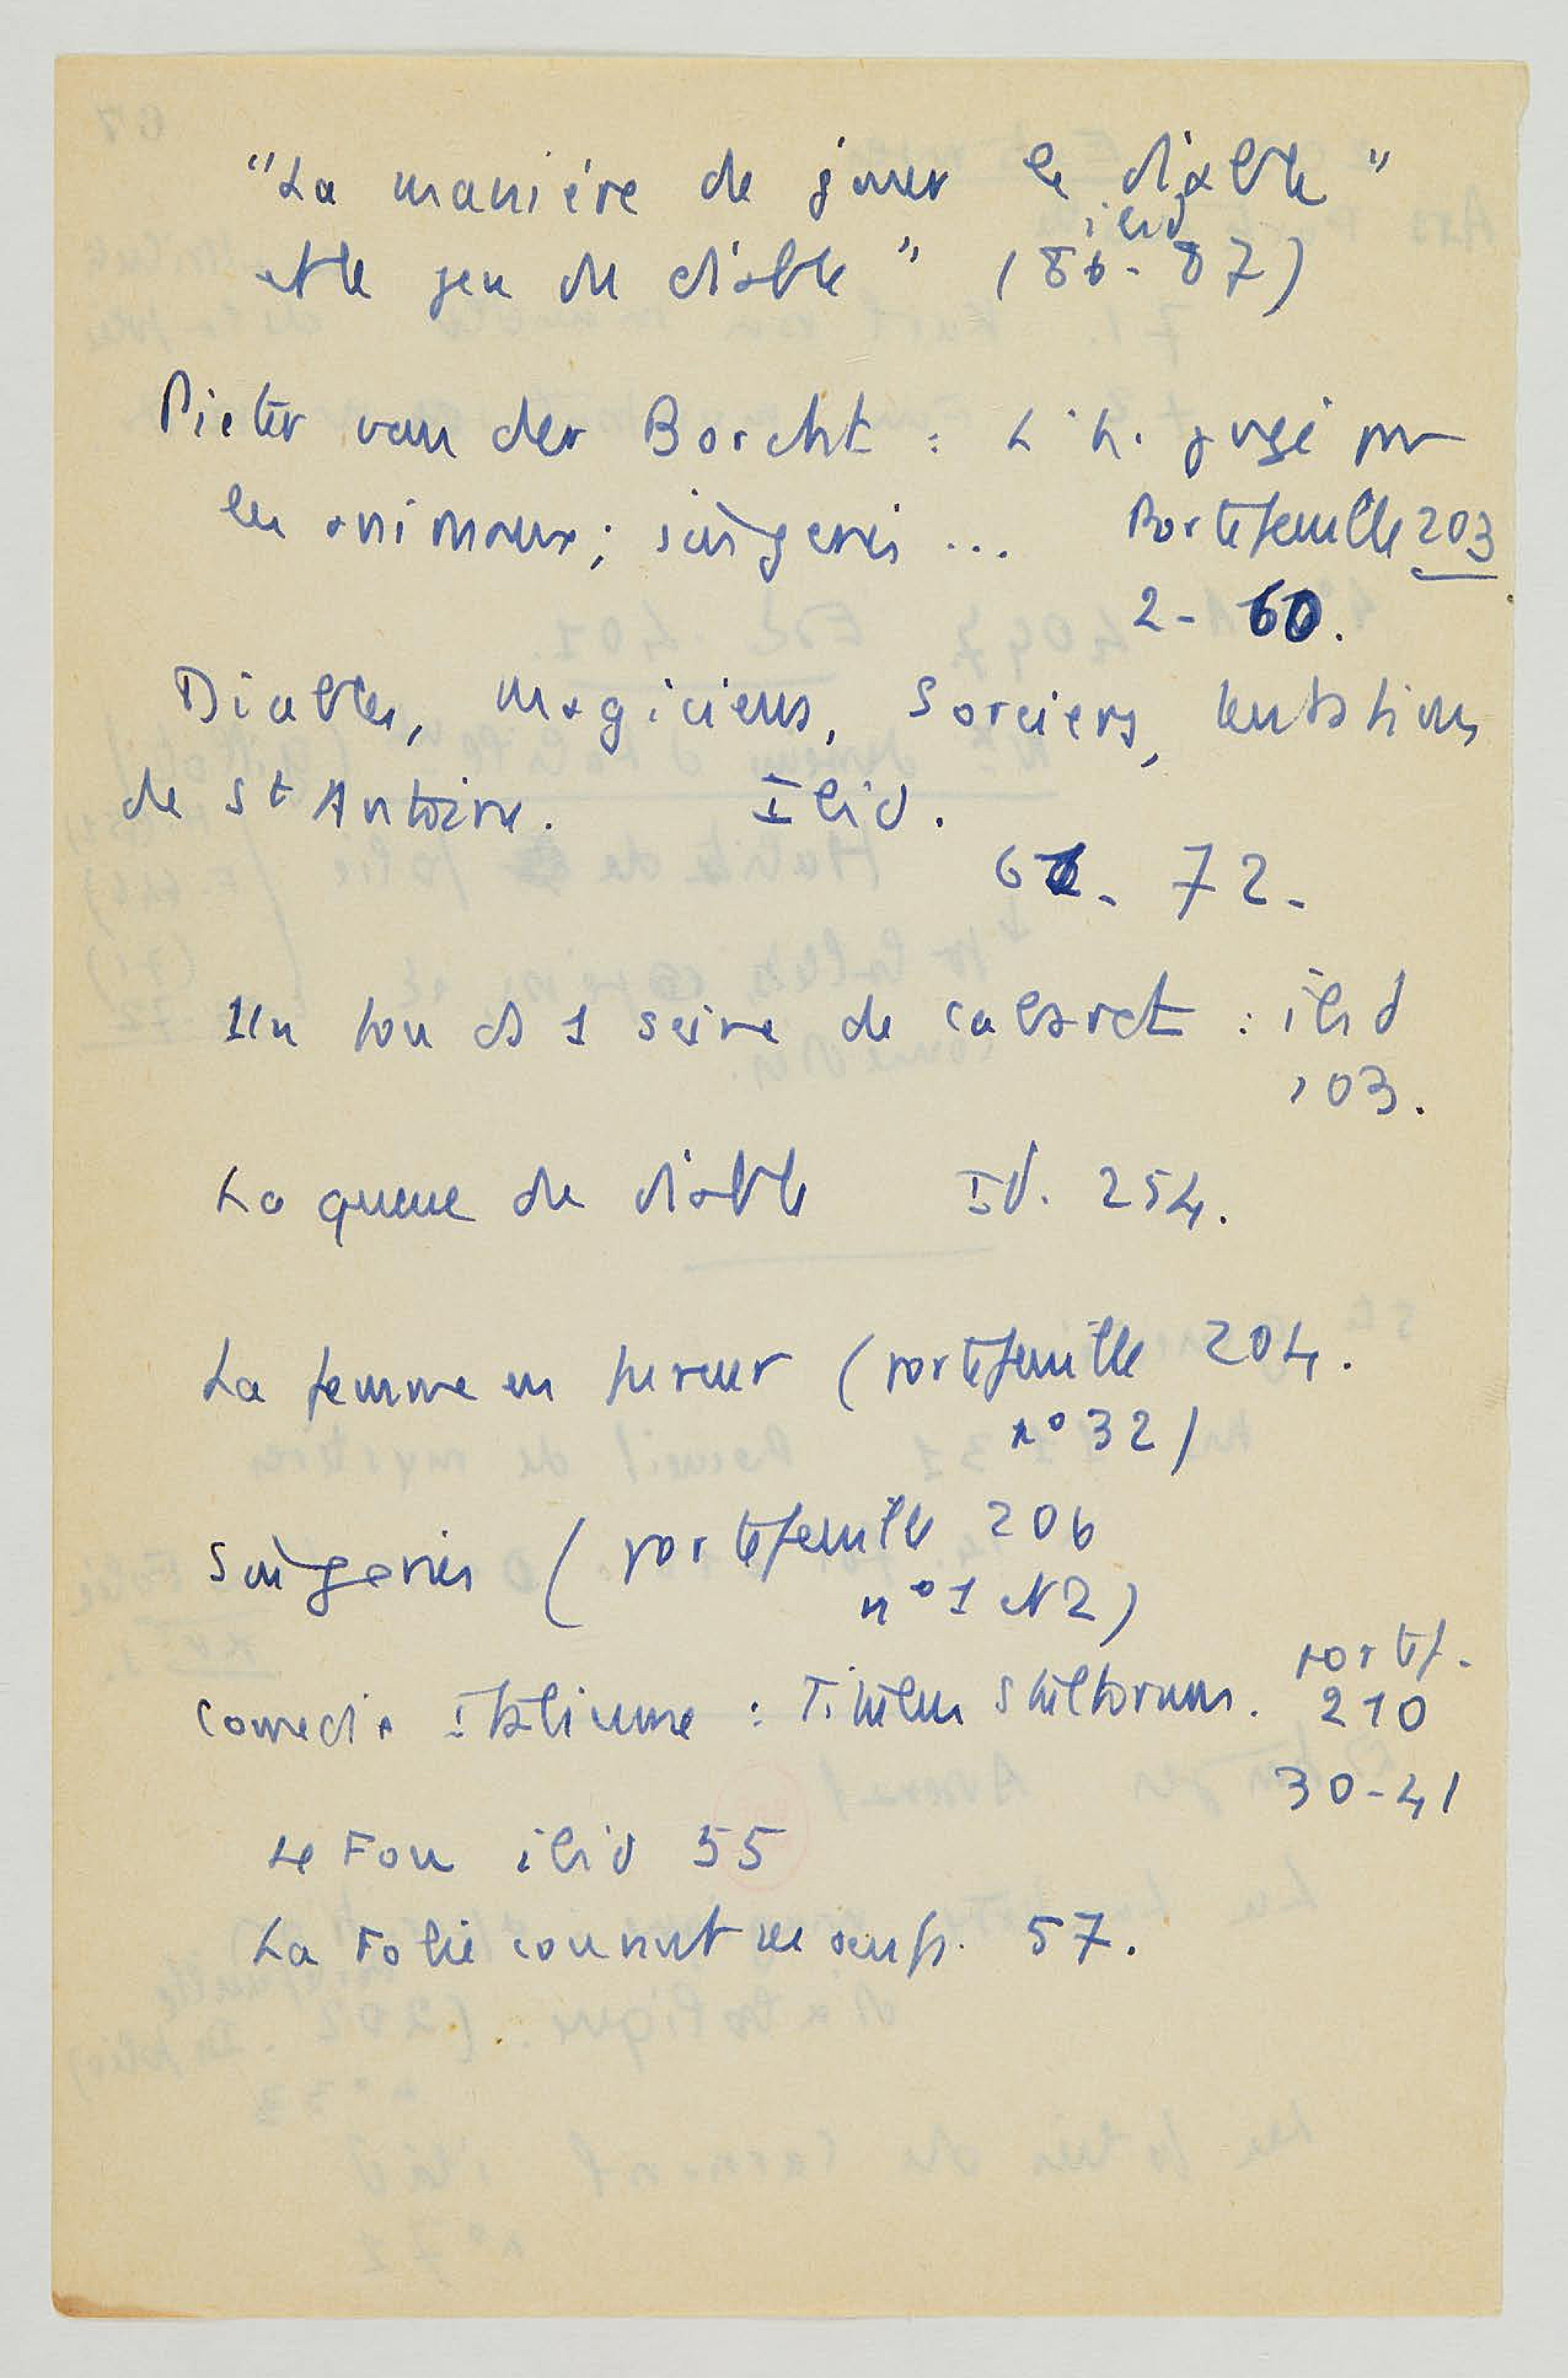 "La manière de jouer le diable"
ibid
et le jeu du diable" (86-87)
Pieter van der Borcht : L'h. jugé par
les animaux ; singeries ... Portefeuille 203
2- 60.
Diables, magiciens, sorciers, tentations
de St Antoine. Ibid.
61- 72-
Un fou ds 1 scène de cabaret : ibid
103.
La queue du diable Id. 254.
La femme en fureur (portefeuille 204.
n° 32)
Singeries (portefeuille 206
n° 1 et 2)
Comedia Italienne : Tituleus Stultorum. portef.
210
30-41
Le Fou ibid 55
La Folie couvrant ses 57.